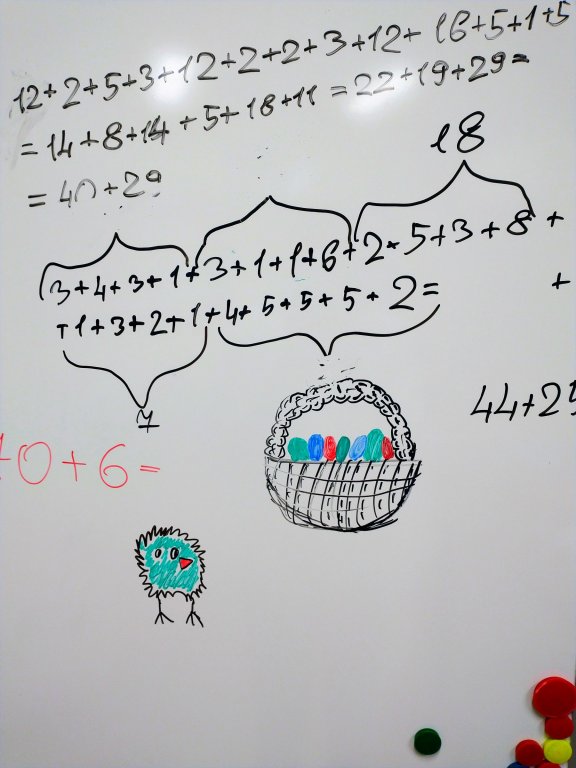 12+2+5+3+12+2+2+3+12+ 16+5+1+5
= 14+8+14+5+18+11 = 22+19+29=
= 40+29
18
3+4+3+1+3+1+1+6+2+5+3+8+
+
+1+3+2+1+4+5+5+5+2=
7
44+25
70+6=